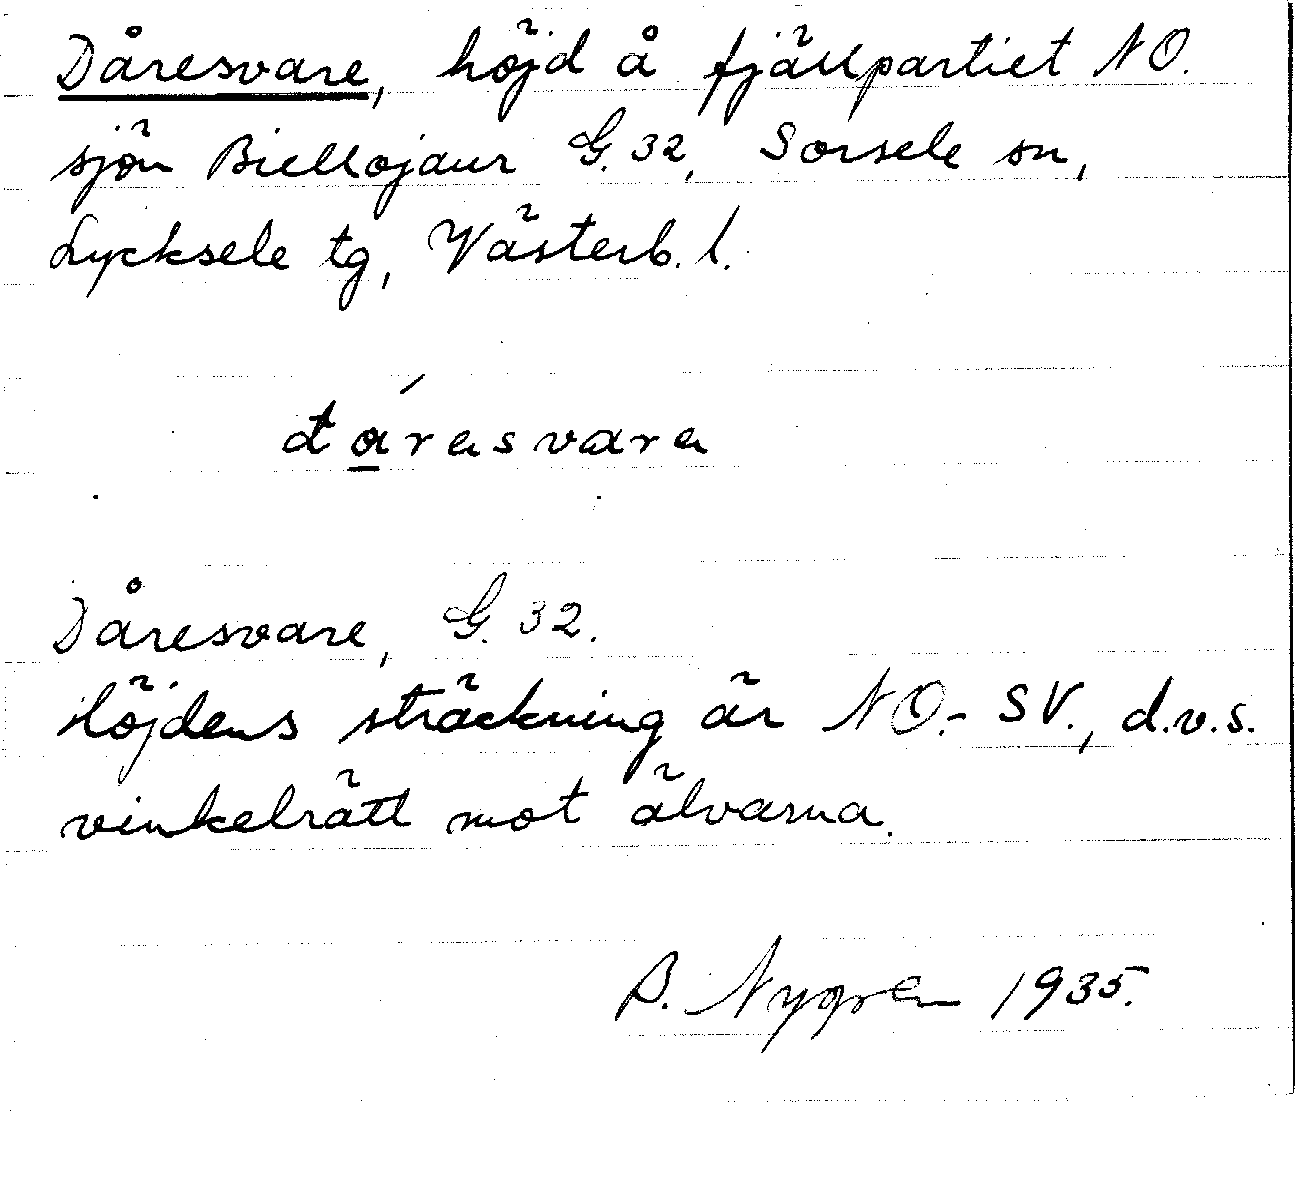 Dåresvare, höjd å fjällpartiet NO.
sjön Biellojaur G. 32, Sorsele sn,
Lycksele tg, Västerb. l.
dáresvare
Dåresvare, G. 32.
Höjdens sträckning är NO.- SV., d.v.s.
vinkelrätt mot älvarna.
B. Nygren 1935.